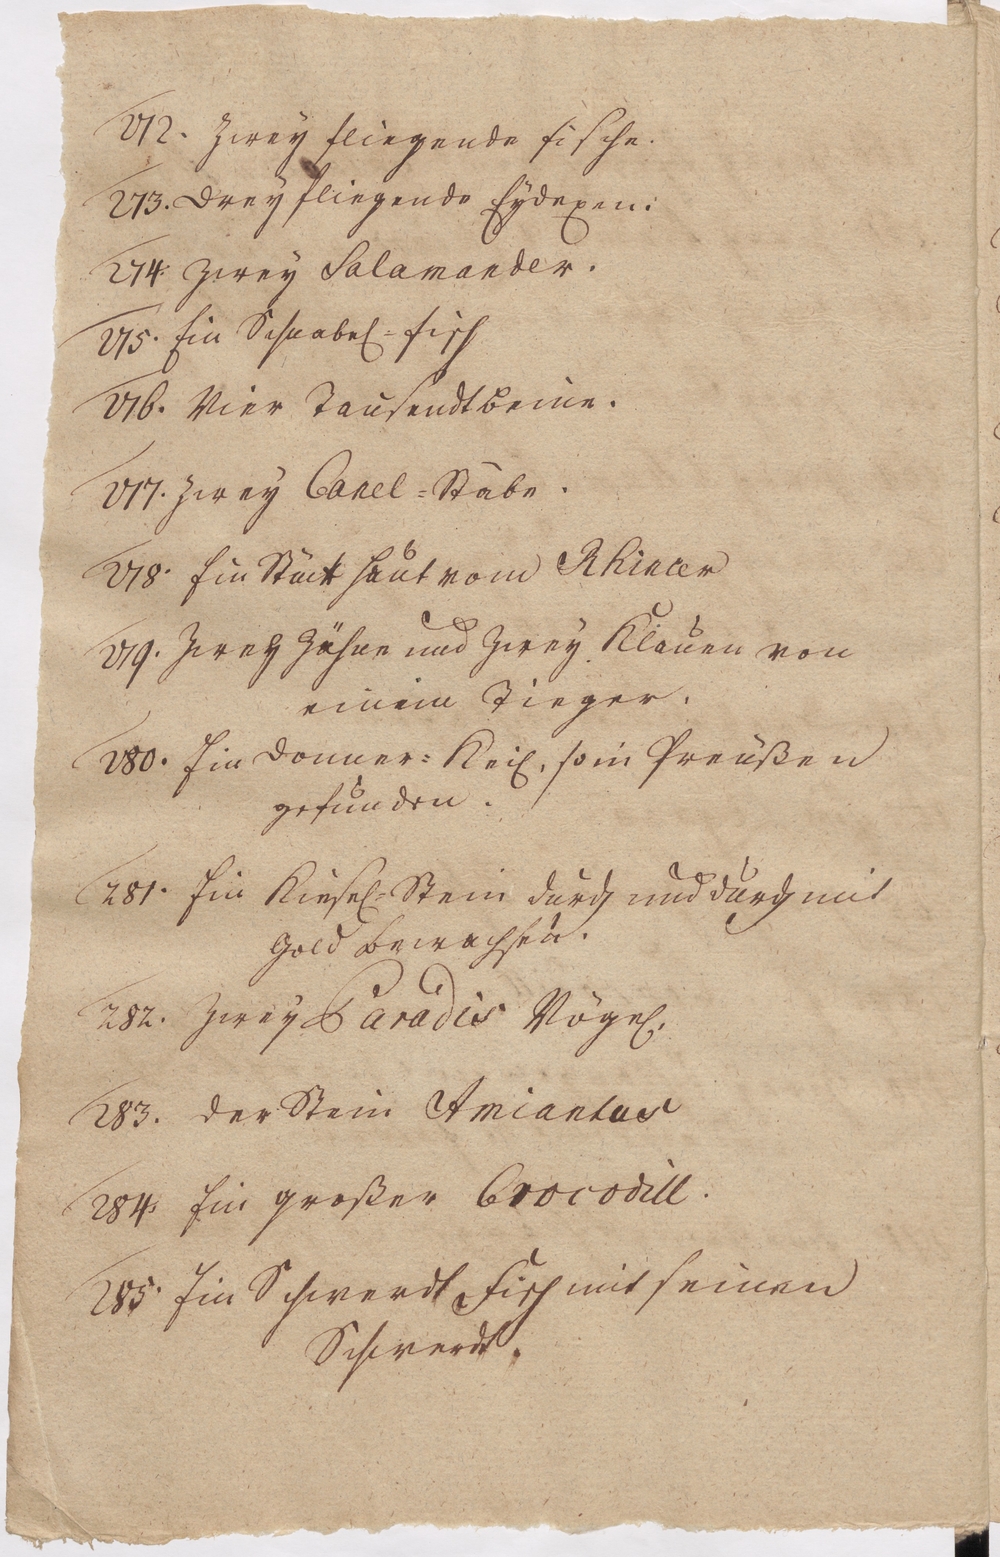 272. Zwey fliegende fische.
273. Drey fliegende Eydexen.
274. Zwey Salamander.
275. Ein Schnabel-fisch
276. Vier Tausendtbeine.
277. Zwey Canel-Stäbe.
278. Ein Stück haut vom
279. Zwey Zähne und Zwey Klauen von
einem Tieger.
280. Ein Donner-Keil, so in Preußen
gefunden.
281. Ein Kiesel-Stein durch und durch mit
Gold bewachsen.
282. Zwey Paradis Vögel.
283. der Stein Amiantus
284. Ein großer Crocodill.
285. Ein Schwerdt Fisch mit seinen
Schwerdt.